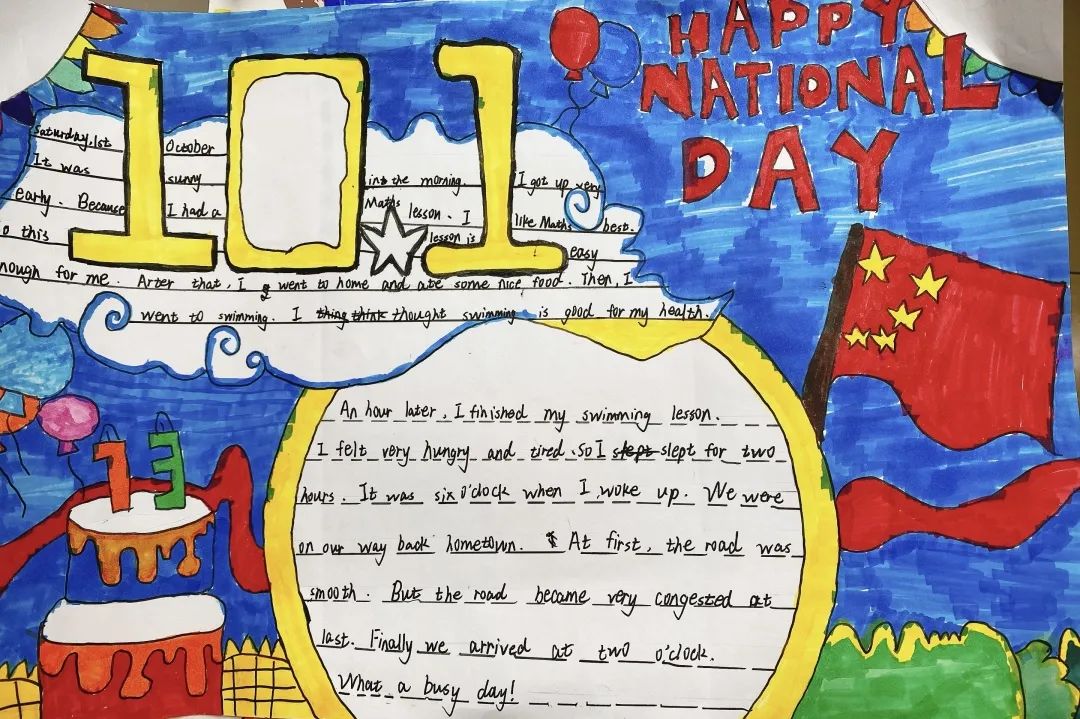 HAPPY
NATIONAL
DAY
101
Saturday, 1st October
It was sunny in the morning. I got up very
early. Because I had a Maths lesson. I like Maths best.
o this lesson is easy
nough for me. Arter that, I went to home and ate some nice food. Then, I
went to swimming. I thing think thought swimming is good for my health.
13
An hour later, I finished my swimming lesson.
I felt very hungry and tired. So I slept slept for two
hours. It was six o'clock when I woke up. We were
on our way back hometown. At first, the road was
smooth. But the road became very congested at
last. Finally we arrived at two o'clock.
What a busy day!